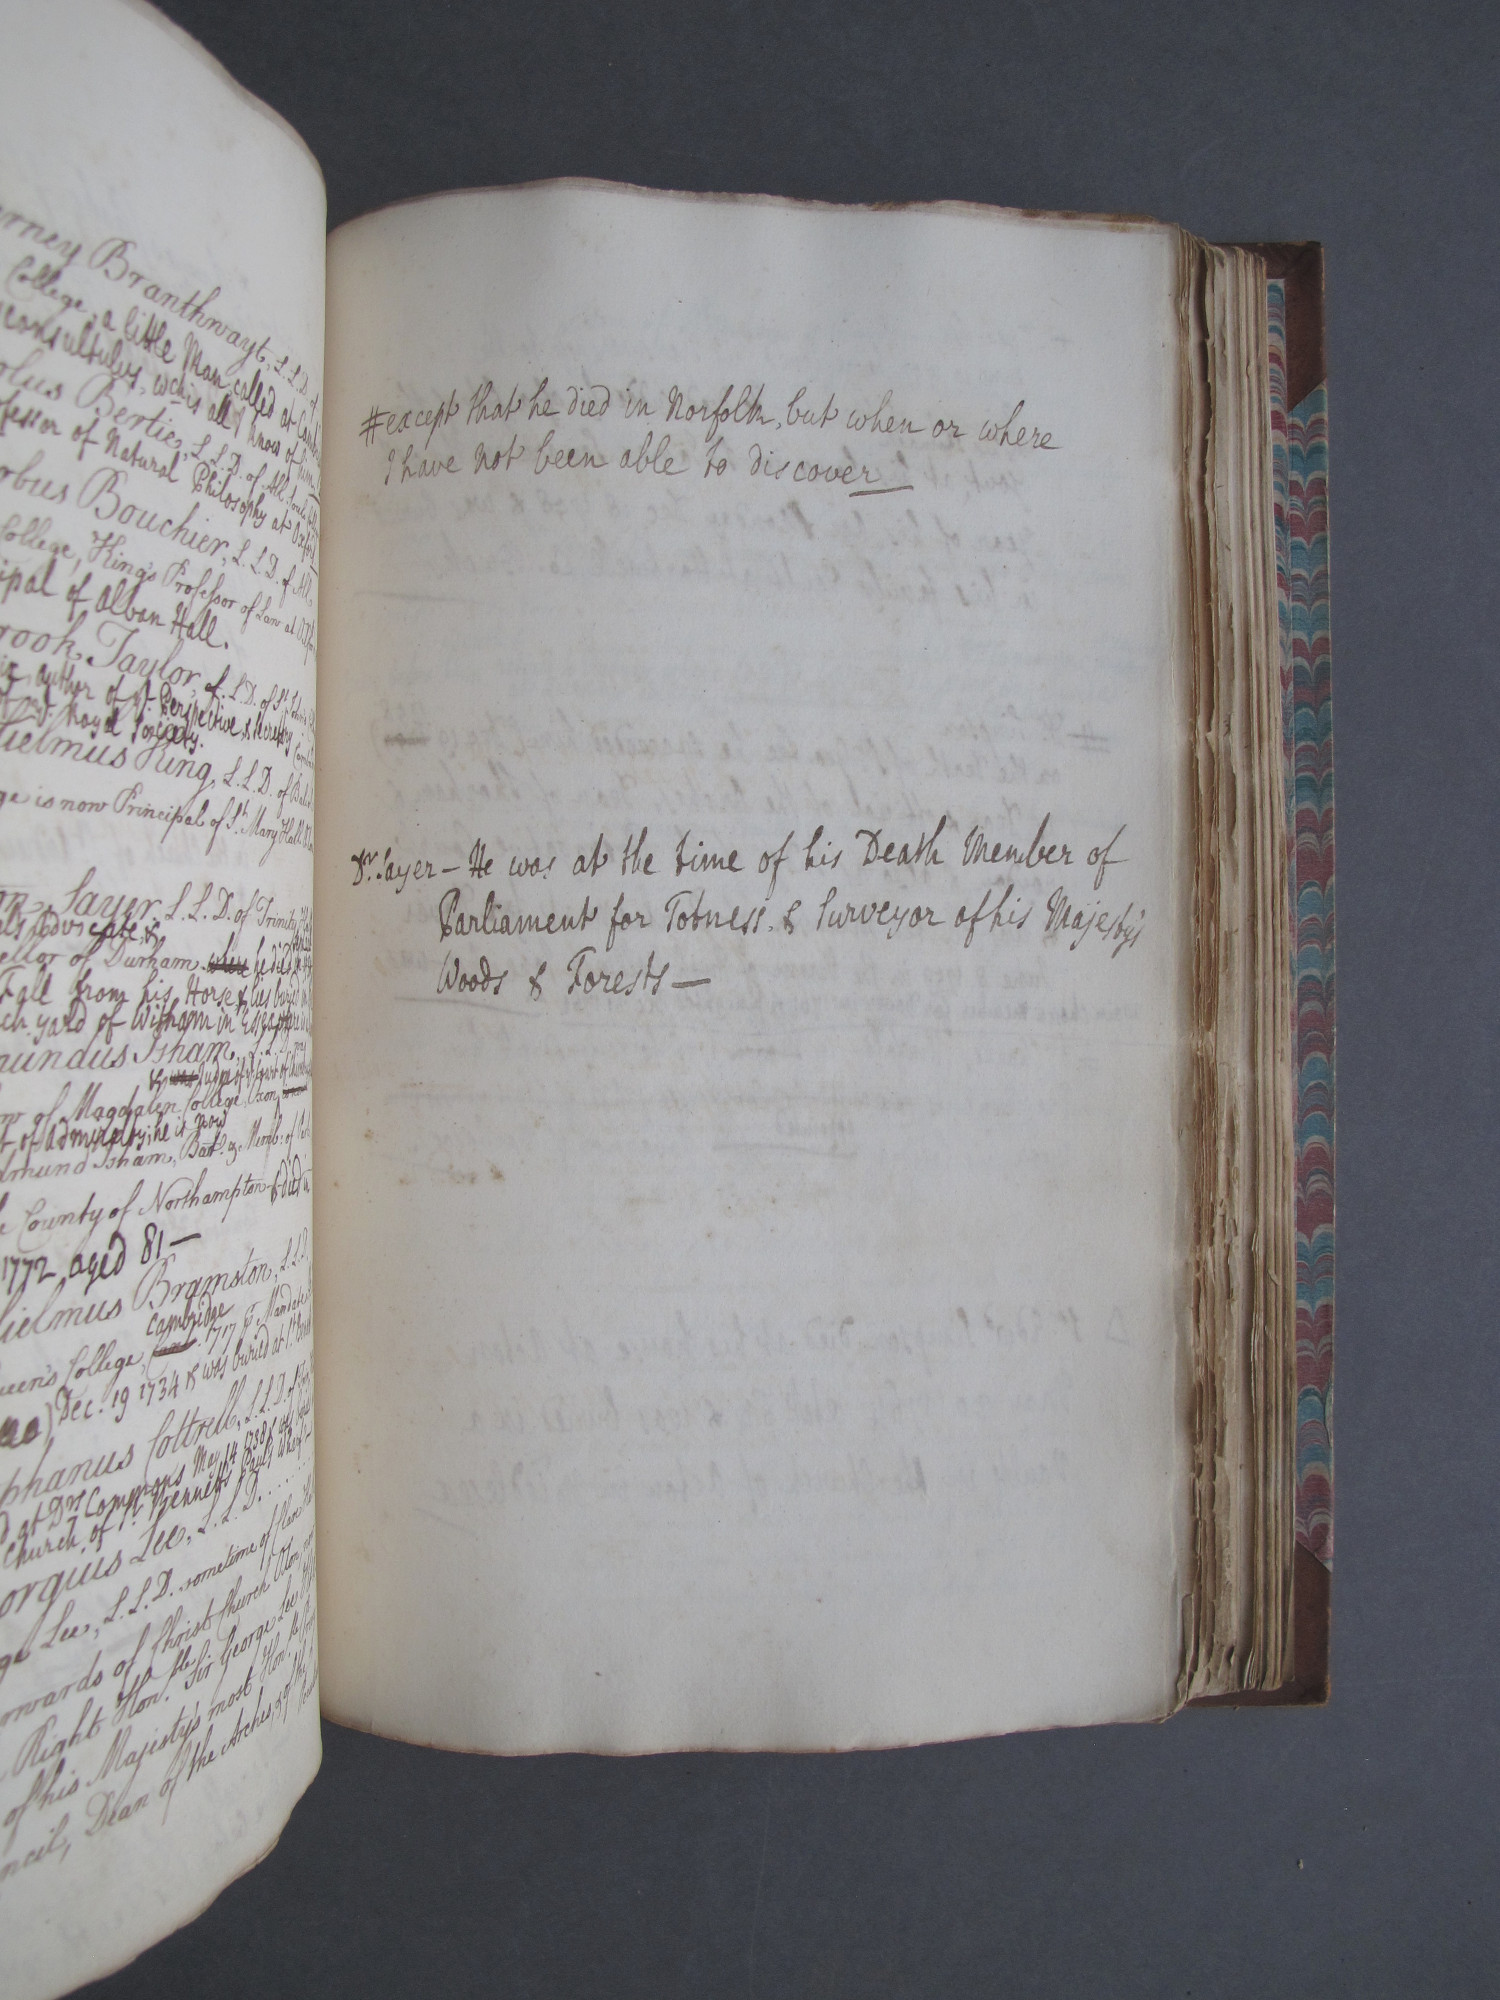 erney Branthwayt, L.L.D. of
College, a little Man, called at Camb
consultulus, wch is all I know of him
olus Bertie, L.L.D. of All Souls
ofessor of Natural Philosophy at Oxford
obus Bouchier, L.L.D. of All
College, King's Professor of Law at Oxford
ipal of Alban Hall.
rook Taylor, L.L.D. of St. John's
author of ye Perspective, & Secretary
of ye Royal Society.
ielmus King, L.L.D. of Bal
ge is now Principal of St. Mary Hall
Sayer, L.L.D. of Trinity Hall
als Advocate, &
ellor of Durham where he died
Fall from his Horse & lies buried in
ch yard of Witham in Essex
mundus Isham, L.L.D.
& was Judge of ye Court of
ow of Magdalen College, Oxon,
t of Admiralty; he is now
dmund Isham, Bart. & Memb: of
e County of Northampton & died in
1772 aged 81 —
ielmus Bramston, L.L.D.
Cambridge
ueen's College, 1717 pr. Mandate
Dec. 19 1734 & was buried at St.
phanus Cottrell, L.L.D. of
d at Drs Commons May 14 1738 & was buried
Church of St. Bennett Pauls Wharf
orgius Lee, L.L.D. .....
ge Lee, L.L.D. sometime of Clare Hall
erwards of Christ Church Oxon, now
Right Honble Sir George Lee
of his Majesty's most Hon.
ncil, Dean of the Arches, & of the
# except that he died in Norfolk, but when or where
I have not been able to discover
Dr. Sayer — He was at the time of his Death Member of
Parliament for Totness, & Surveyor of his Majesty's
Woods & Forests —